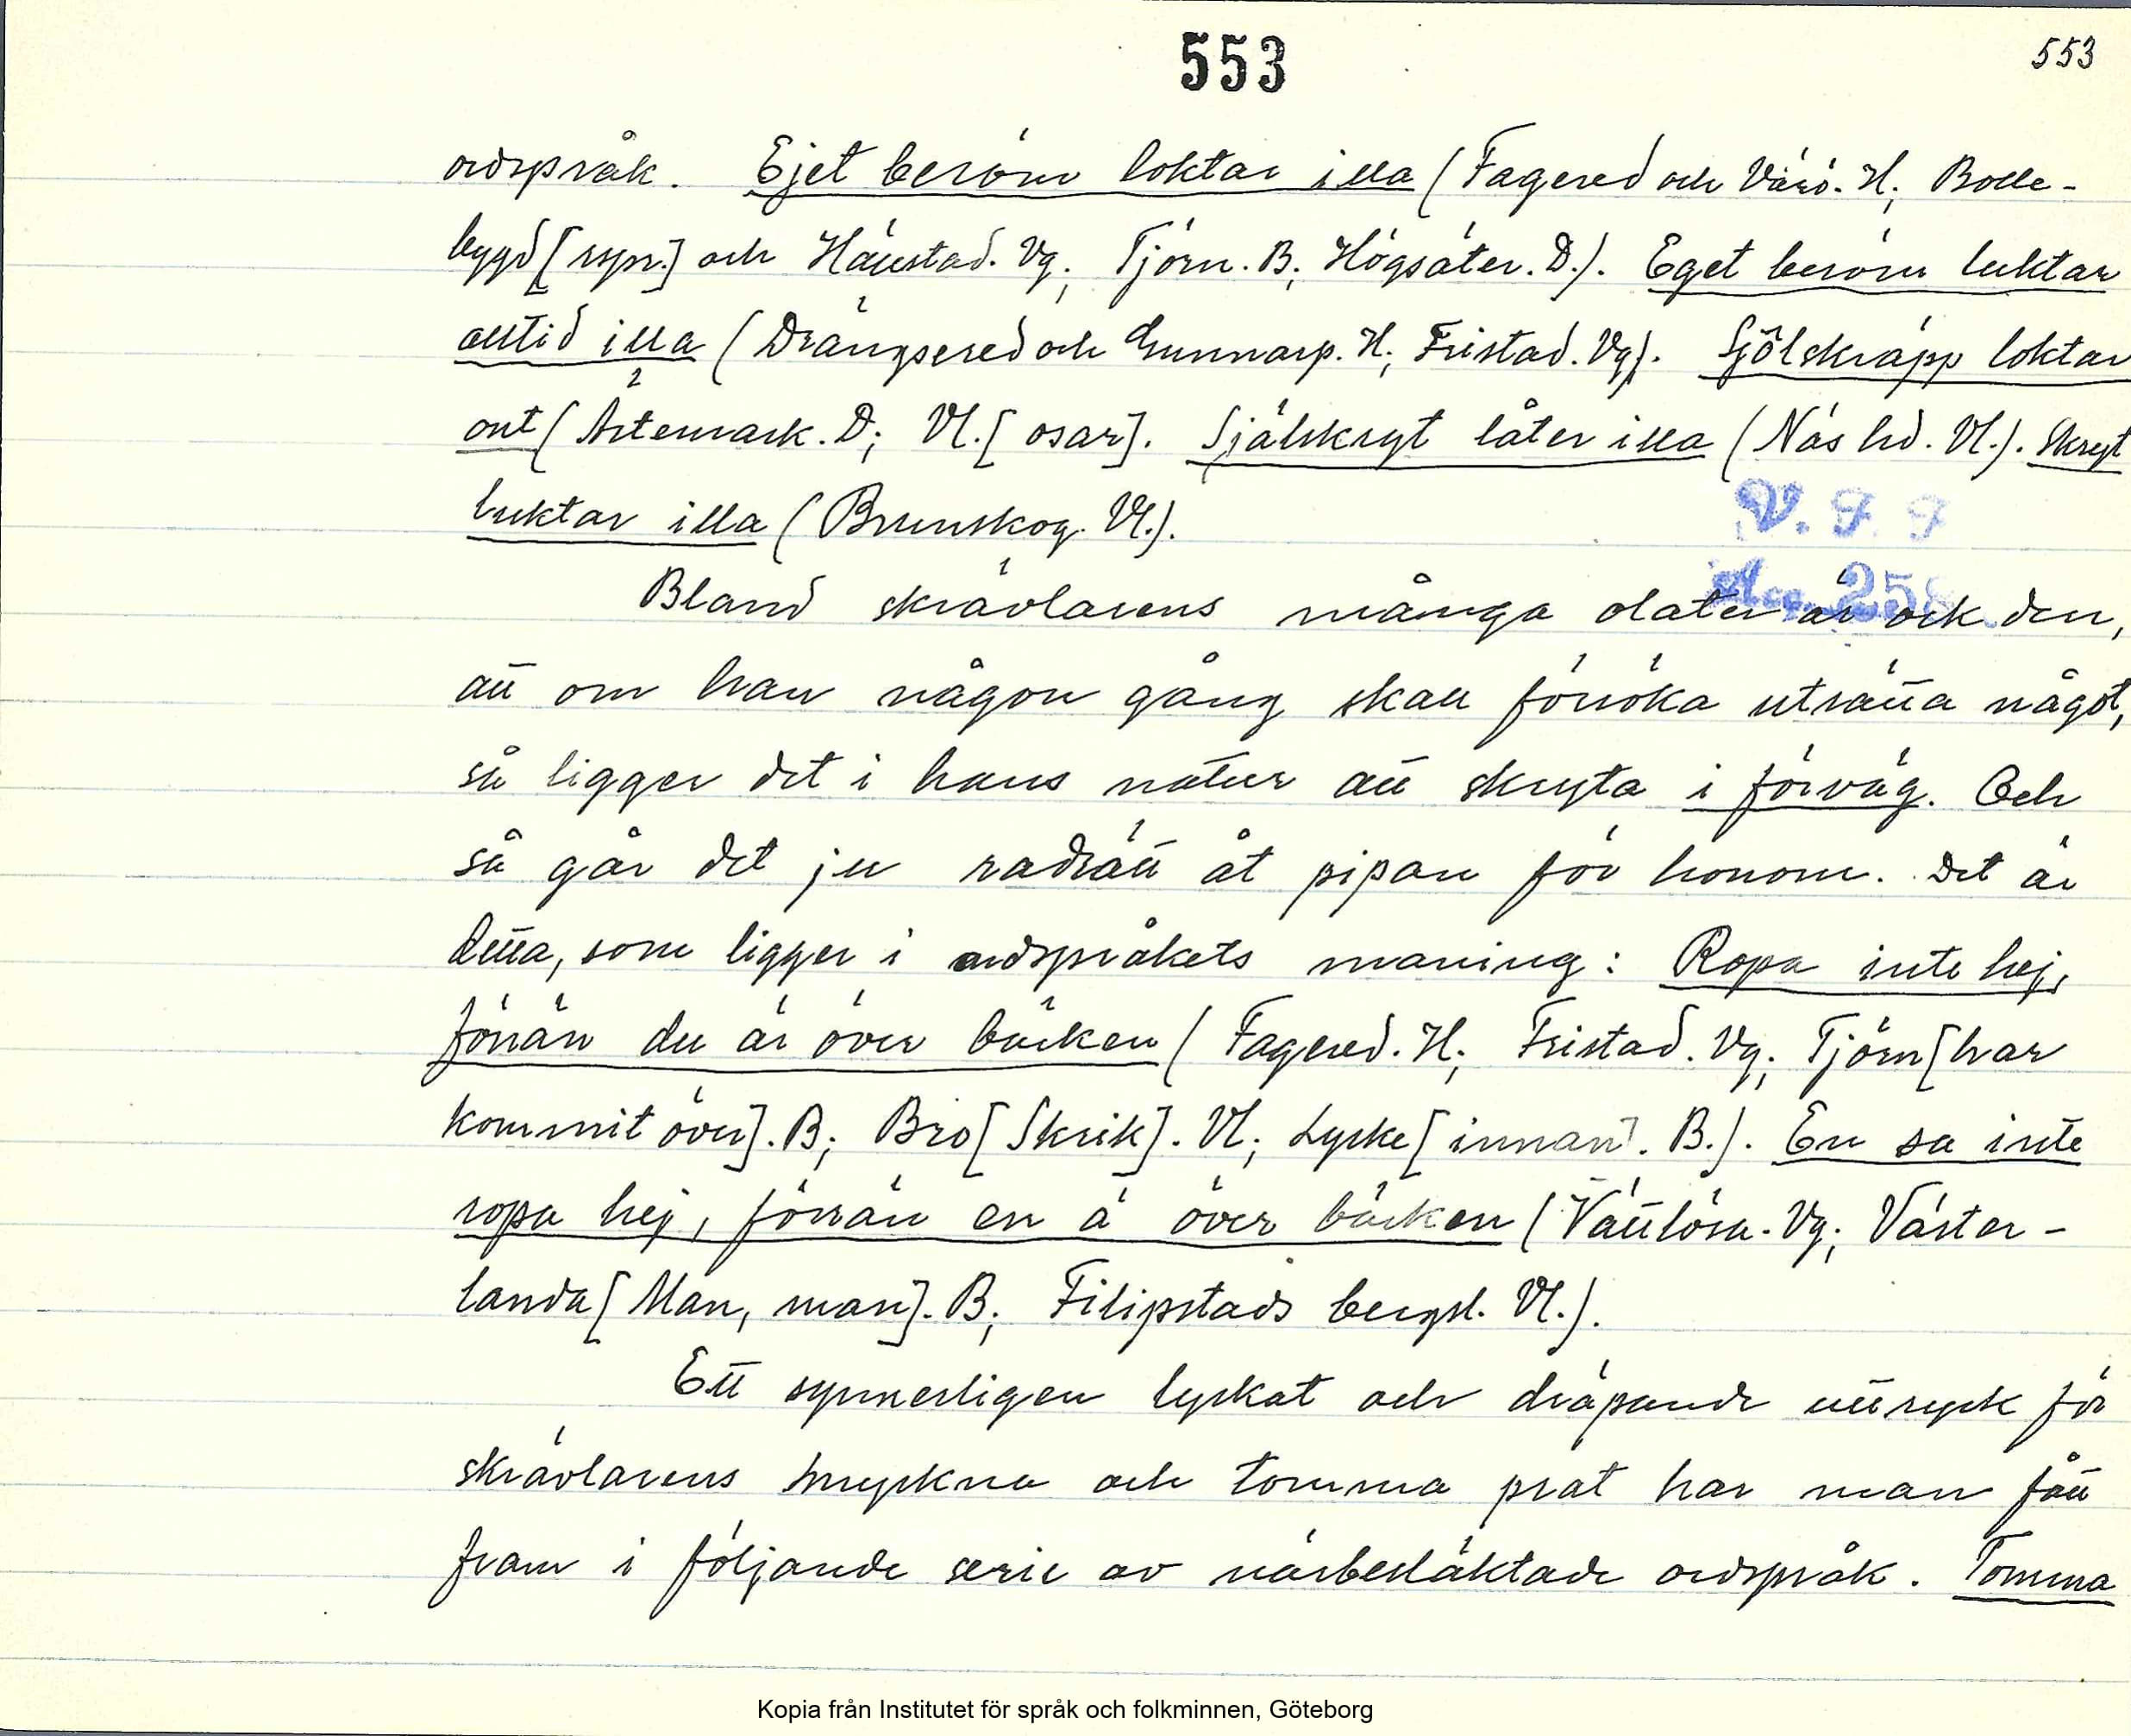 553
553
ordspråk. Ejet beröm loktar illa (Fagered och Värö. H; Bolle-
bygd [rspr.] och Hällstad. Vg; Tjörn. B; Högsäter. D.). Eget beröm luktar
alltid illa (Drängsered och Gunnarp. H; Fristad. Vg). Sjölskräpp loktar
ont (Ärtemark. D; Vl. [osar]. Själskryt låter illa (Näs hd. Vl.). Skryt
luktar illa (Brunskog. Vl.).
V. F. F
Acc. 258
Bland skrävlarens många olater är ock den,
att om han någon gång skall försöka uträtta något,
så ligger det i hans natur att skryta i förväg. Och
så går det ju radrätt åt pipan för honom. Det är
detta, som ligger i ordspråkets maning: Ropa inte hej,
förrän du är över bäcken (Fagered. H; Fristad. Vg; Tjörn [har
kommit över]. B; Bro [Skrik]. Vl; Lycke [innan]. B.). En sa inte
ropa hej, förrän en ä över bäcken (Vättlösa. Vg; Väster-
landa [Man, man]. B; Filipstads bergsl. Vl.).
Ett synnerligen lyckat och dräpande uttryck för
skrävlarens myckna och tomma prat har man fått
fram i följande serie av närbesläktade ordspråk. Tomma
Kopia från Institutet för språk och folkminnen, Göteborg